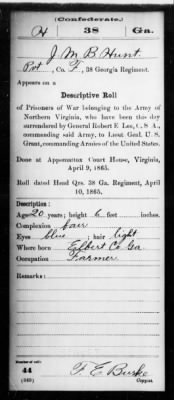 (Confederate.)
H 38 Ga.
J M B Hunt
Pvt, Co. F, 38 Georgia Regiment.
Appears on a
Descriptive Roll
of Prisoners of War belonging to the Army of
Northern Virginia, who have been this day
surrendered by General Robert E. Lee, C. S. A.,
commanding said Army, to Lieut. Genl. U. S.
Grant, commanding Armies of the United States.
Done at Appomattox Court House, Virginia,
April 9, 1865.
Roll dated Head Qrs. 38 Ga. Regiment, April
10, 1865.
Description:
Age 20 years; height 6 feet inches.
Complexion fair
Eyes blue; hair light
Where born Elbert Co Ga
Occupation Farmer
Remarks:
Number of roll:
44
(649)
F. E. Burke
Copyist.